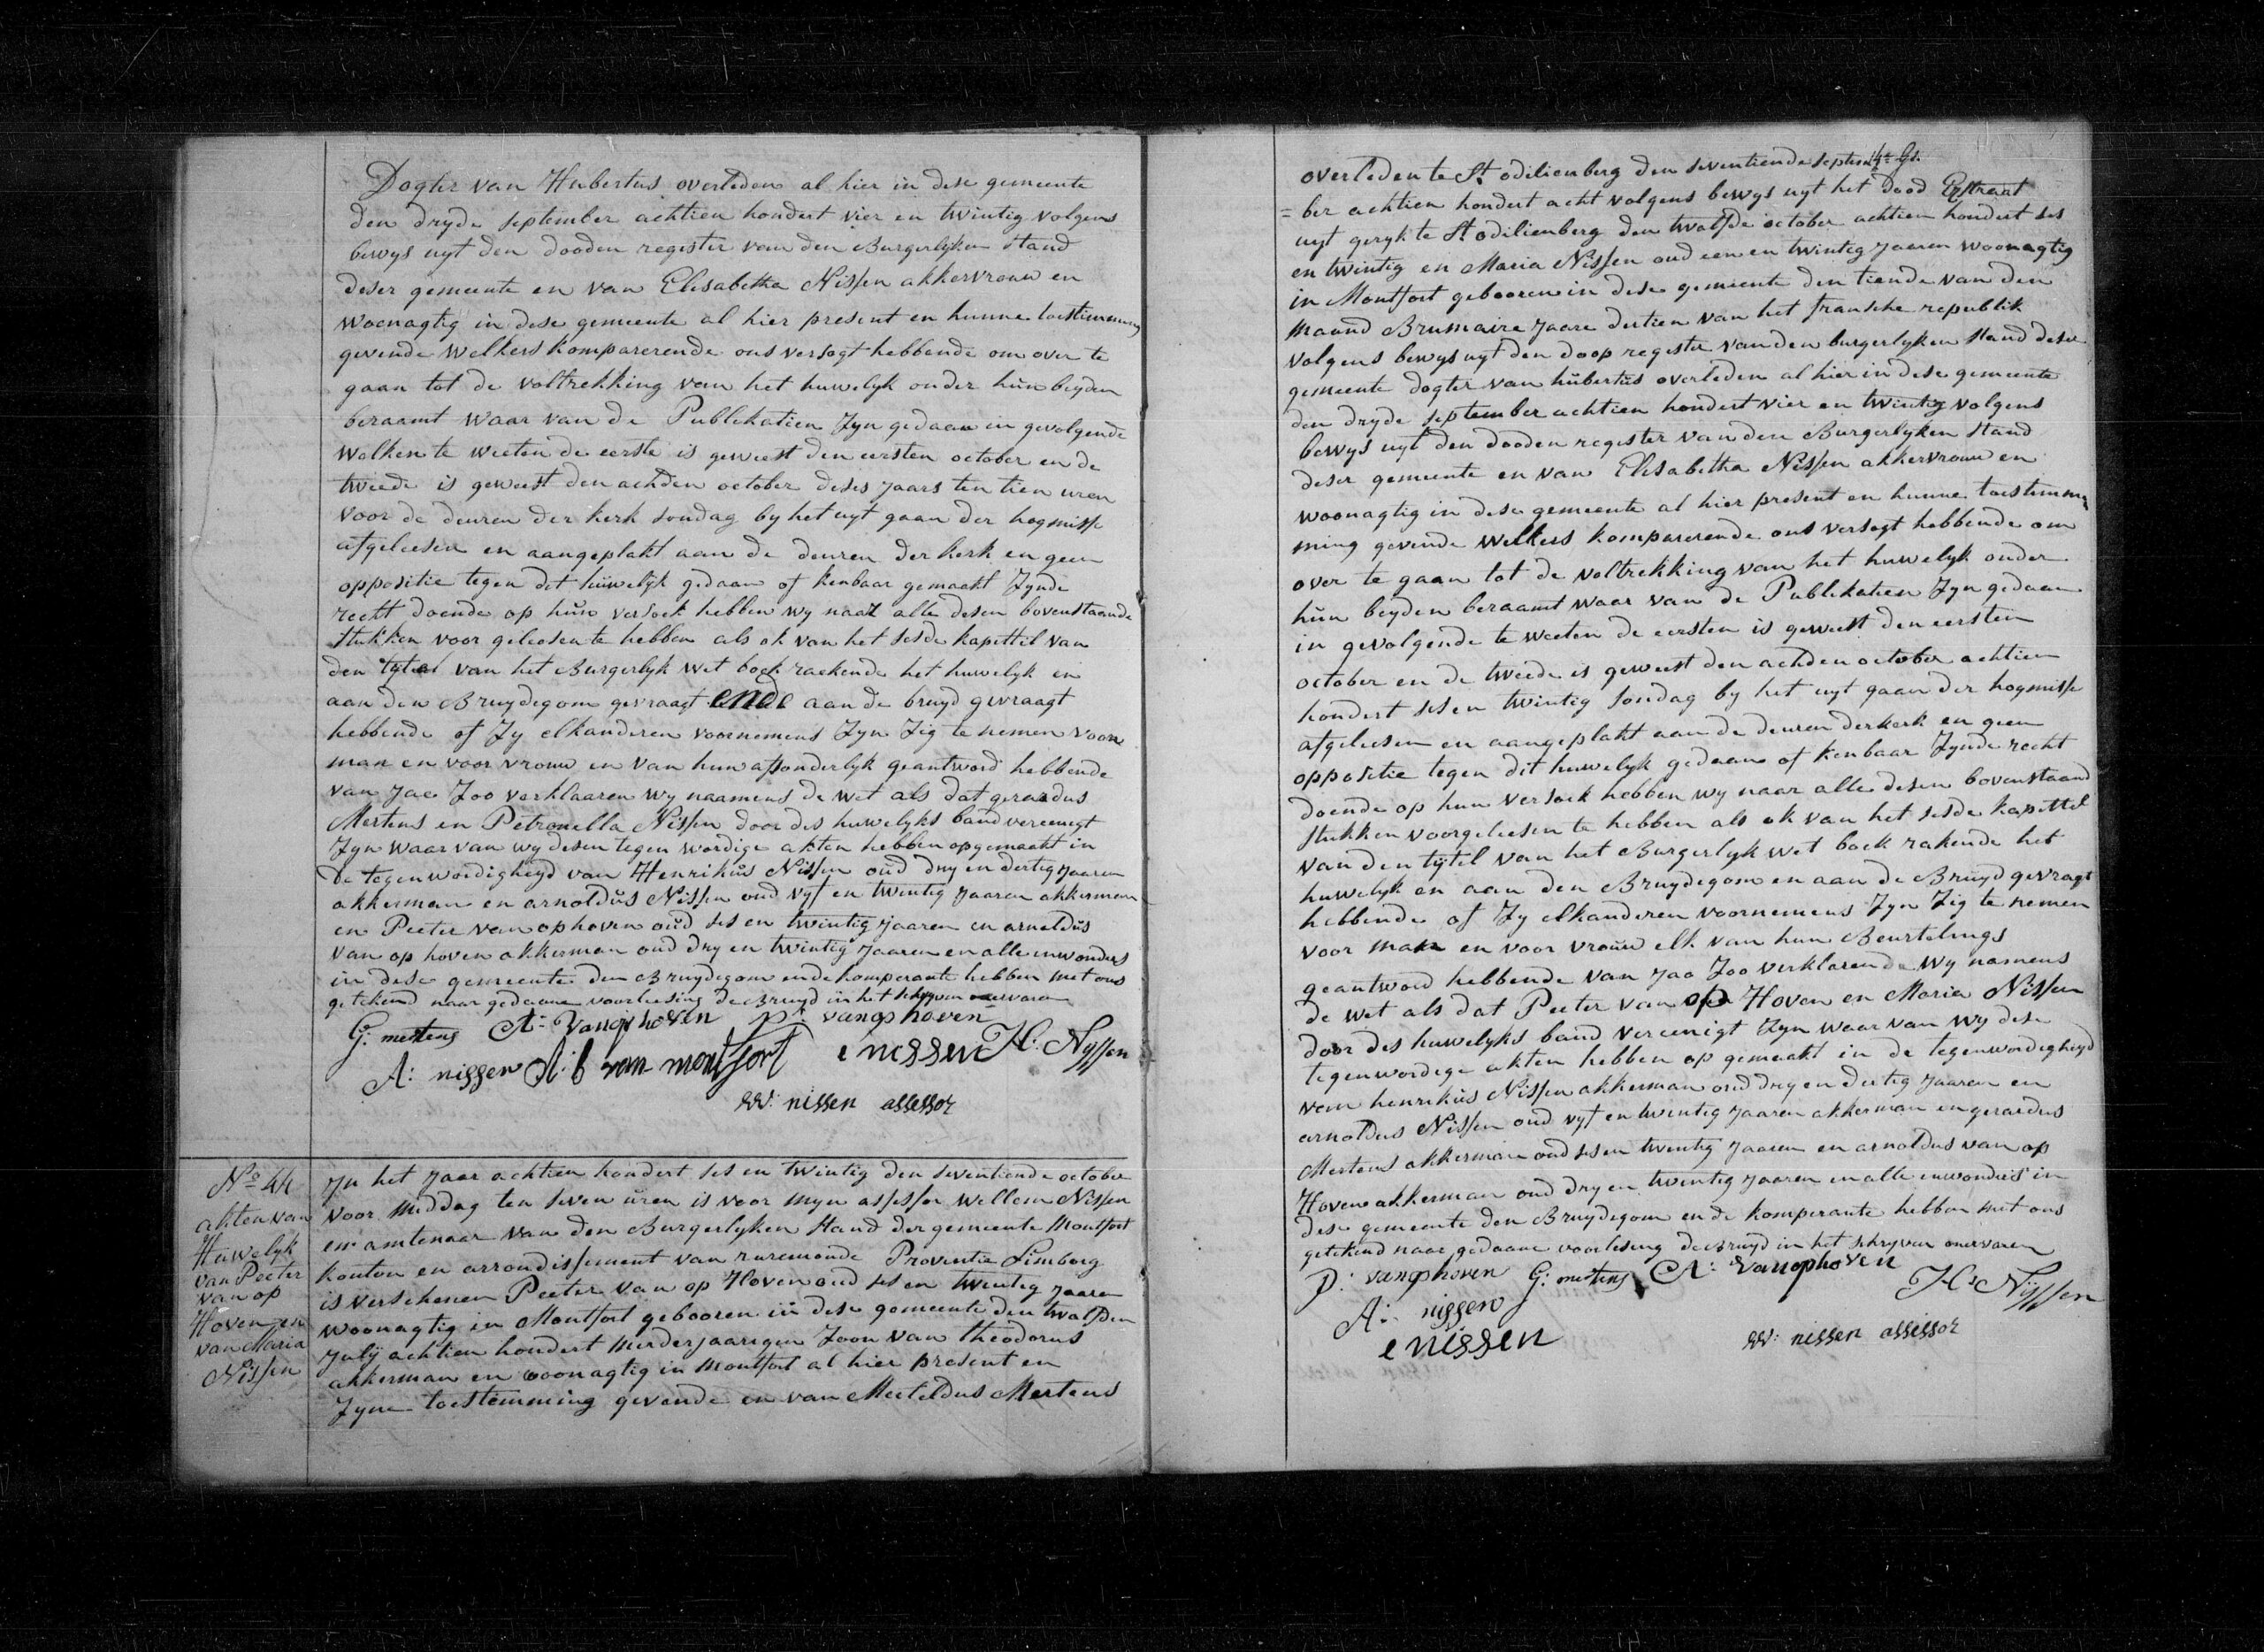 Dogter van Hubertus overleden al hier in dese gemeente
den dryde september achtien hondert vier en twintig volgens
bewys uyt den dooden register van den Burgerlyken stand
deser gemeente en van Elisabetha Nissen akkervrouw en
woonagtig in dese gemeente al hier present en hunne toestimming
gevende welkers komparerende ons versogt hebbende om over te
gaan tot de voltrekking van het huwelyk onder hun beyden
beraamt waar van de Publikatien Zyn gedaan in gevolgende
welken te weeten de eerste is geweest den eersten october en de
tweede is geweest den achden october deses jaars ten tien uren
voor de deuren der kerk sondag by het uyt gaan der hogmisse
afgeleesen en aangeplakt aan de deuren der kerk en geen
oppositie tegen det huwelyk gedaan of kenbaar gemaekt Zynde
recht doende op hun versoek hebben wy naar alle desen bovenstaande
stukken voor geleesen te hebben als ok van het sesde kapittel van
den tytel van het Burgerlyk wet boek raekende het huwelyk en
aan den Bruydegom gevraagt ende aan de bruyd gevraagt
hebbende of Zy elkanderen voornemens Zyn Zig te nemen voor
man en voor vrouw en van hun afsonderlyk geantword hebbende
van jae Zoo verklaaren wy naamens de wet als dat gerardus
Mertens en Petronella Nissen door des huwelyks band vereenigt
Zyn waar van wy desen tegen wordige akten hebben opgemaekt in
de tegenwordigheyd van Henrikus Nissen oud dry en dertig jaaren
akkerman en arnoldus Nissen oud vyf en twintig jaaren akkerman
en Peeter van ophoven oud ses en twintig jaaren en arnoldus
van op hoven akkerman oud dry en twintig jaaren en alle inwonders
in dese gemeente den Bruydegom ende komperante hebben met ons
getekend naar gedaane voorleesing de Bruyd in het schryven onervaren
G: mertens A: Vanophoven P: vanophoven
A: nissen A: b van montfort e nissen H: Nyssen
W: nissen assessor
No 44
akten van
Huwelyk
van Peeter
van op
Hoven en
van Maria
Nissen
Jn het jaar achtien hondert ses en twintig den seventiende october
voor middag ten seven uren is voor myn assessor Wellem Nissen
en amtenaar van den Burgerlyken stand der gemeente Montfort
konton en arrondissement van ruremonde Proventie Limborg
is verschenen Peeter van op Hoven oud ses en twintig jaaren
woonagtig in Montfort gebooren in dese gemeente den twalfden
July achtien hondert merderjaarigen Zoon van theodorus
akkerman en woonagtig in Montfort al hier present en
Zyne toestemming gevende en van Meeteldus Mertens
overleden te St odilienberg den seventiende septem
= ber achtien hondert acht volgens bewys uyt het dood Exstraat
uyt geryk te St odilienberg den twalfde october achtien hondert ses
en twintig en Maria Nissen oud een en twintig jaaren woonagtig
in Montfort gebooren in dese gemeente den tiende van den
maand Brumaire jaare dertien van het fransche republik
volgens bewys uyt den doop register van den burgerlyken stand deser
gemeente dogter van hubertus overleden al hier in dese gemeente
den dryde september achtien hondert vier en twintig volgens
bewys uyt den dooden register van den Burgerlyken stand
deser gemeente en van Elisabetha Nissen akkervrouw en
woonagtig in dese gemeente al hier present en hunne toestimm
ming gevende welkers komparerende ons versogt hebbende om
over te gaan tot de voltrekking van het huwelyk onder
hun beyden beraamt waar van de Publikatien Zyn gedaan
in gevolgende te weeten de eersten is geweest den eersten
october en de tweede is geweest den achden october achtien
hondert ses en twintig sondag by het uyt gaan der hogmisse
afgeleesen en aangeplakt aan de deuren der kerk en geen
oppositie tegen dit huwelyk gedaan of kenbaar Zynde recht
doende op hun versoek hebben wy naar alle desen bovenstaand
stukken voorgeleesen te hebben als ok van het sesde kapittel
van den tytel van het Burgerlyk wet boek rakende het
huwelyk en aan den Bruydegom en aan de Bruyd gevragt
hebbende of Zy elkanderen voornemens Zyn Zig te nemen
voor man en voor vrouw elk van hun Beurtelings
geantword hebbende van jaa Zoo verklarende wy namens
de wet als dat Peeter van op Hoven en Maria Nissen
door des huwelyks band vereenigt Zyn waar van wy dese
tegenwordege akten hebben op gemaekt in de tegenwordegheyd
van henrikus Nissen akkerman oud dry en dertig jaaren en
arnoldus Nissen oud vyf en twentig jaaren akkerman en gerardus
Mertens akkerman oud ses en twintig jaaren en arnoldus van op
Hoven akkerman oud dry en twintig jaaren en alle inwonders in
dese gemeente den Bruydegom en de komperante hebben met ons
getekend naar gedaane voorlesing de Bruyd in het schryven onervaren
P: vanophoven G: mertens A: Vanophoven
A: nissen H: Nyssen
e nissen W: nissen assessor